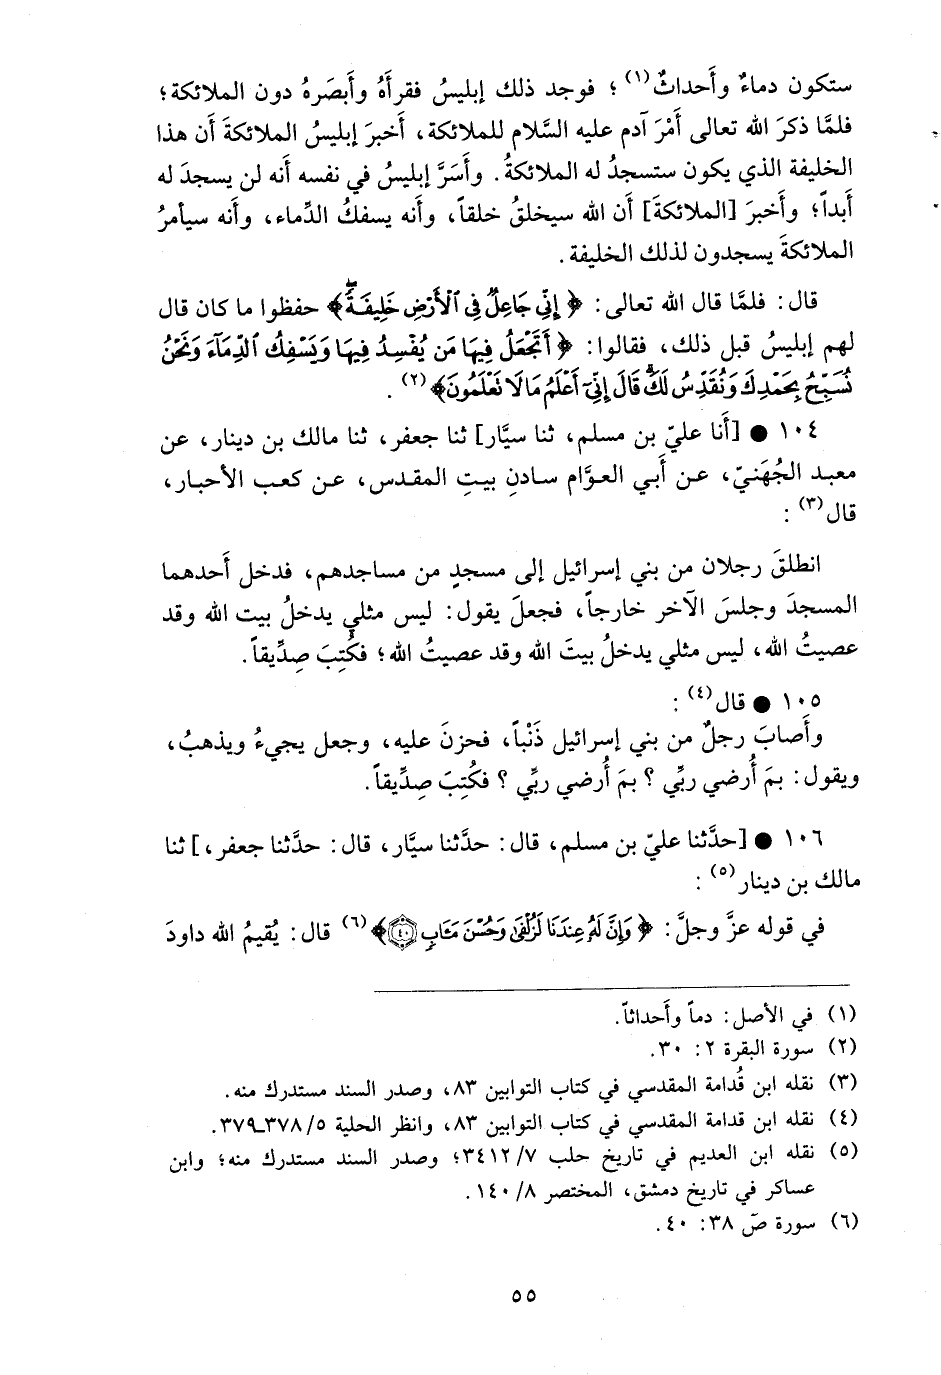 ستكون دماءٌ وأَحداثٌ(١) ؛ فوجد ذلك إبليسُ فقرأَهُ وأَبصَرهُ دون الملائكة ؛
فلمَّا ذكرَ الله تعالى أَمْرَ آدم عليه السَّلام للملائكة، أَخبرَ إبليسُ الملائكةَ أَن هذا
الخليفة الذي يكون ستسجدُ له الملائكةُ. وأَسَرَّ إبليسُ في نفسه أَنه لن يسجدَ له
أَبداً؛ وأَخبرَ [الملائكةَ] أَن الله سيخلقُ خلقاً، وأَنه يسفكُ الدِّماء، وأَنه سيأمرُ
الملائكةَ يسجدون لذلك الخليفة.
قال: فلمَّا قال الله تعالى: ﴿ إِنِّي جَاعِلٌ فِي ٱلْأَرْضِ خَلِيفَةً ﴾ حفظوا ما كان قال
لهم إبليسُ قبل ذلك، فقالوا: ﴿ أَتَجْعَلُ فِيهَا مَن يُفْسِدُ فِيهَا وَيَسْفِكُ ٱلدِّمَآءَ وَنَحْنُ
نُسَبِّحُ بِحَمْدِكَ وَنُقَدِّسُ لَكَ قَالَ إِنِّيٓ أَعْلَمُ مَا لَا تَعْلَمُونَ ﴾(٢) .
١٠٤ ● [أَنا عليّ بن مسلم، ثنا سيَّار] ثنا جعفر، ثنا مالك بن دينار، عن
معبد الجُهَنيّ، عن أَبي العوَّام سادنِ بيتِ المقدس، عن كعب الأحبار،
قال(٣) :
انطلقَ رجلان من بني إسرائيل إلى مسجدٍ من مساجدهم، فدخل أَحدهما
المسجدَ وجلسَ الآخر خارجاً، فجعلَ يقول: ليس مثلي يدخلُ بيت الله وقد
عصيتُ الله، ليس مثلي يدخلُ بيتَ الله وقد عصيتُ الله؛ فكُتبَ صِدِّيقاً.
١٠٥ ● قال(٤) :
وأَصابَ رجلٌ من بني إسرائيل ذَنْباً، فحزنَ عليه، وجعل يجيءُ ويذهبُ،
ويقول: بمَ أُرضي ربِّي ؟ بمَ أُرضي ربِّي ؟ فكُتِبَ صِدِّيقاً.
١٠٦ ● [حدَّثنا عليّ بن مسلم، قال: حدَّثنا سيَّار، قال: حدَّثنا جعفر،] ثنا
مالك بن دينار(٥) :
في قوله عزَّ وجلَّ: ﴿ وَإِنَّ لَهُ عِندَنَا لَزُلْفَىٰ وَحُسْنَ مَـَٔابٍ ٤٠ ﴾(٦) قال: يُقيمُ الله داودَ
(١) في الأصل: دماً وأَحداثاً.
(٢) سورة البقرة ٢: ٣٠.
(٣) نقله ابن قُدامة المقدسي في كتاب التوابين ٨٣، وصدر السند مستدرك منه.
(٤) نقله ابن قدامة المقدسي في كتاب التوابين ٨٣، وانظر الحلية ٥/ ٣٧٨ـ٣٧٩.
(٥) نقله ابن العديم في تاريخ حلب ٧/ ٣٤١٢؛ وصدر السند مستدرك منه؛ وابن
عساكر في تاريخ دمشق، المختصر ٨/ ١٤٠.
(٦) سورة صَ ٣٨: ٤٠.
٥٥